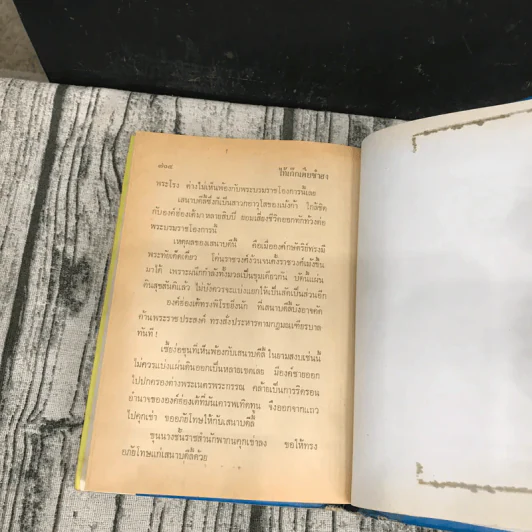 ๗๐๘
พระโรง ต่างไม่เห็นพ้องกับพระบรมราชโองการนี้เลย
เสนาบดีซึ่งก็เป็นสาวกอาวุโสของเม้งก้า ใกล้ชิด
กับองค์ฮ่องเต้มาหลายสิบปี ยอมเสี่ยงชีวิตออกทักท้วงต่อ
พระบรมราชโองการนี้
เหตุผลของเสนาบดีนี้ คือเมื่อองค์กษัตริย์ทรงมี
พระทัยเด็ดเดี่ยว โค่นราชวงศ์ง้วนจนตั้งราชวงศ์เม้งขึ้น
มาได้ เพราะผนึกกำลังทั้งมวลเป็นขุมเดียวกัน บัดนี้แผ่น
ดินสุขสันติแล้ว ไม่บังควรจะแบ่งแยกให้เป็นสัดเป็นส่วนอีก
องค์ฮ่องเต้ทรงพิโรธยิ่งนัก ที่เสนาบดีลี้บังอาจคัด
ค้านพระราชประสงค์ ทรงสั่งประหารตามกฎมณเฑียรบาล
ทันที !
เชี้ยงอ่อขุนที่เห็นพ้องกับเสนาบดีลี้ ในยามสงบเช่นนี้
ไม่ควรแบ่งแผ่นดินออกเป็นหลายเขตเลย มีองค์ชายออก
ไปปกครองต่างพระเนตรพระกรรณ คล้ายเป็นการริดรอน
อำนาจขององค์ฮ่องเต้ที่มีนเคารพเทิดทูน จึงออกจากแถว
ไปคุกเข่า ขออภัยโทษให้กับเสนาบดีลี้
ขุนนางชั้นราชสำนักพากันคุกเข่าลง ขอให้ทรง
อภัยโทษแก่เสนาบดีลี้ด้วย